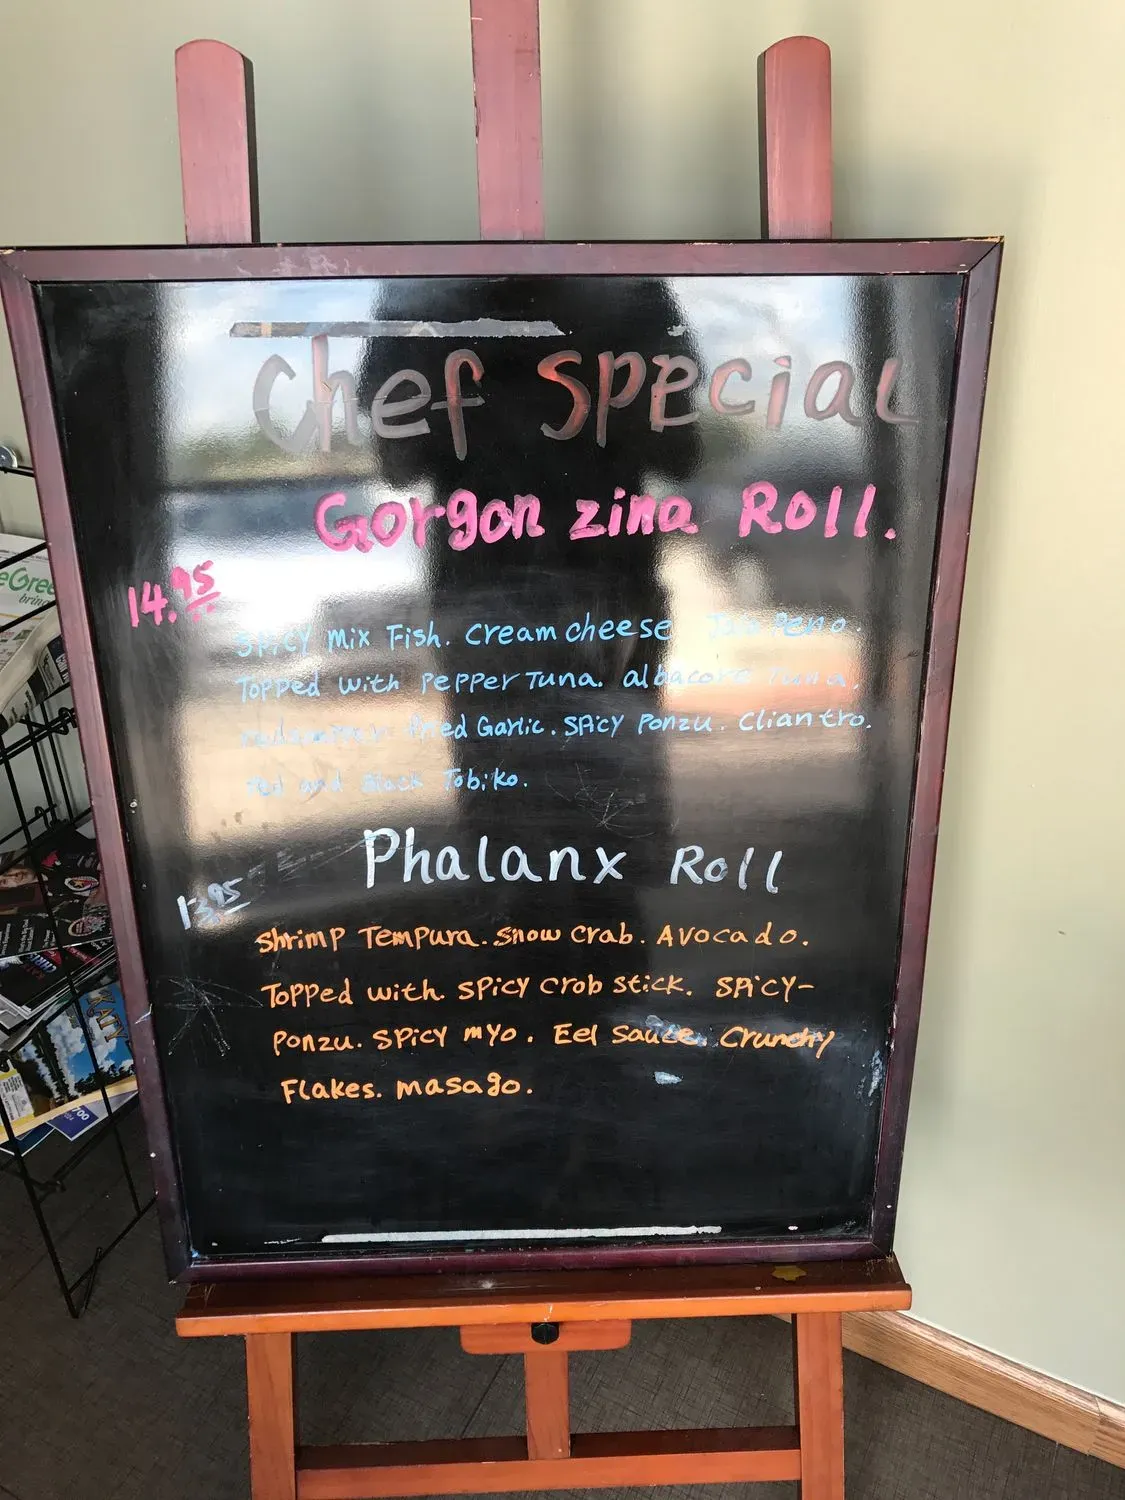 Chef Special
Gorgon zina Roll.
14.95
Spicy mix Fish. Cream cheese Jalapeno.
Topped with pepper Tuna. albacore Tuna.
Fried Garlic. Spicy Ponzu. Cliantro.
red and Black Tobiko.
Phalanx Roll
13.95
Shrimp Tempura. Snow crab. Avocado.
Topped with. Spicy crob stick. Spicy-
Ponzu. Spicy myo. Eel Sauce. Crunchy
Flakes. masago.
eGree
brin
KATY
700